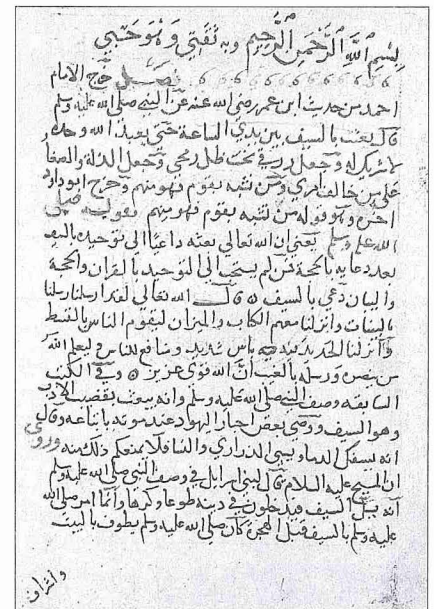 بسم الله الرحمن الرحيم وبه ثقتي وهو حسبي
فصل خرج الامام
احمد من حديث ابن عمر رضي الله عنه عن النبي صلى الله عليه وسلم
قال بعثت بالسيف بين يدي الساعة حتى يعبد الله وحده
لا شريك له وجعل رزقي تحت ظل رمحي وجعل الذلة والصغار
على من خالف امري ومن تشبه بقوم فهو منهم وخرج ابو داود
اخره وهو قوله من تشبه بقوم فهو منهم فقوله صلى
الله عليه وسلم يعني ان الله تعالى بعثه داعيا الى توحيده بالسيف
بعد دعايه بالحجة فمن لم يستجب الى التوحيد بالقران والحجة
والبيان دعي بالسيف قال الله تعالى لقد ارسلنا رسلنا
بالبينات وانزلنا معهم الكتاب والميزان ليقوم الناس بالقسط
وانزلنا الحديد فيه باس شديد ومنافع للناس وليعلم الله
من ينصره ورسله بالغيب ان الله قوي عزيز وفي الكتب
السابقه وصف النبي صلى الله عليه وسلم وانه يبعث بقضيب الادب
وهو السيف ووصى بعض احبار اليهود عند موته باتباعه وقال
انه يسفك الدما ويسبي الذراري والنسا فلا يمنعكم ذلك منه وروي
ان المسيح عليه السلام قال لبني اسرايل في وصف النبي صلى الله عليه وسلم
انه يسل السيف فيدخلون في دينه طوعا وكرها وانما امر صلى الله
عليه وسلم بالسيف قبل الهجرة كان صلى الله عليه وسلم يطوف بالبيت
واشراف